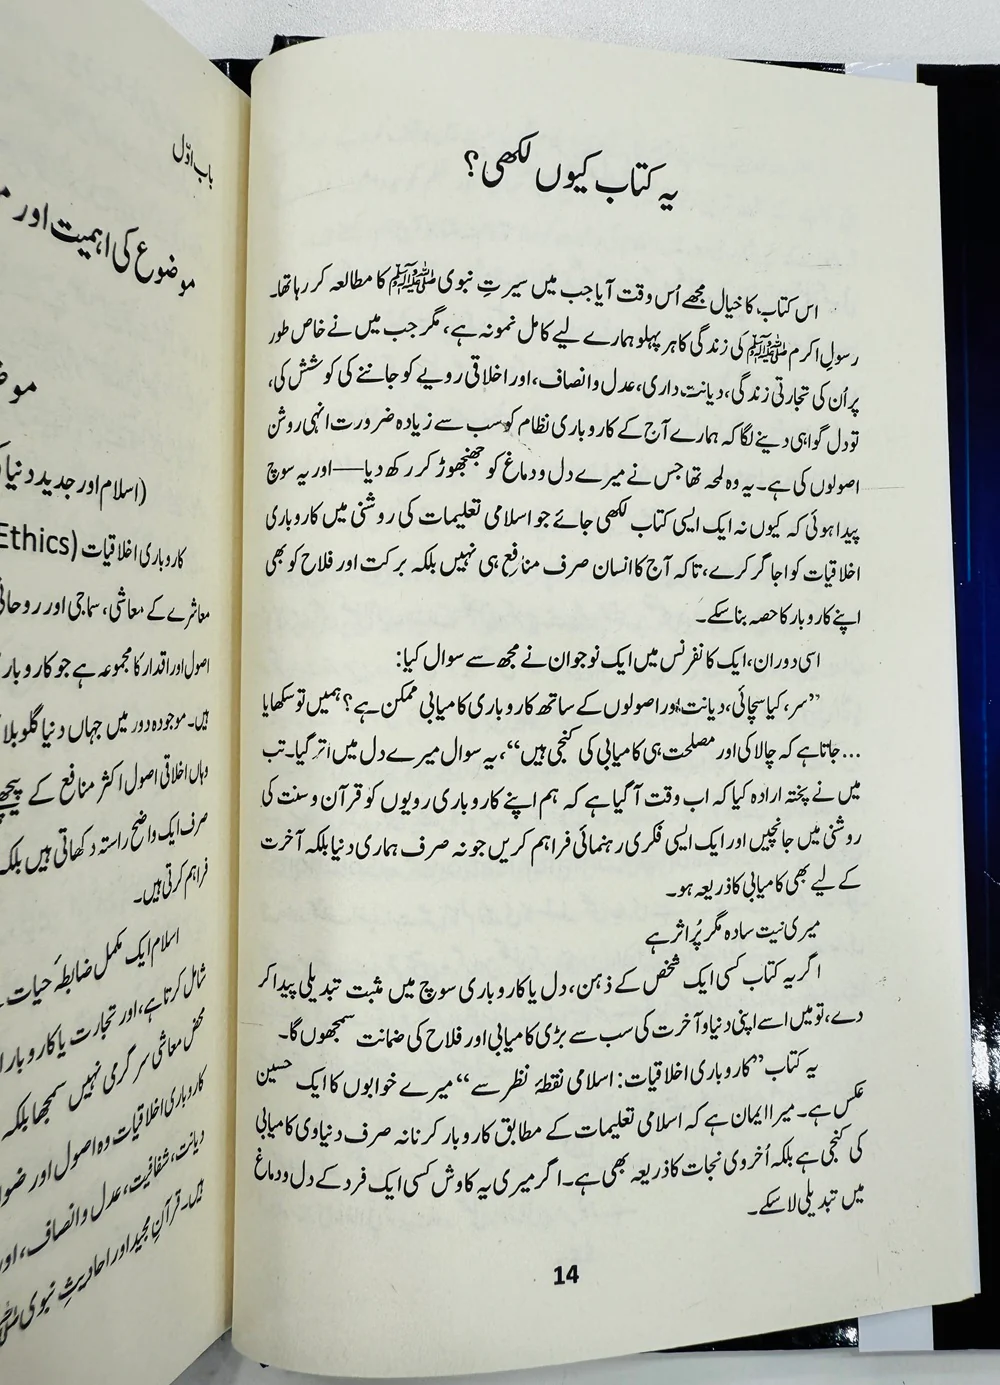 یہ کتاب کیوں لکھی؟
اس کتاب کا خیال مجھے اُس وقت آیا جب میں سیرتِ نبوی ﷺ کا مطالعہ کر رہا تھا۔
رسولِ اکرم ﷺ کی زندگی کا ہر پہلو ہمارے لیے کامل نمونہ ہے، مگر جب میں نے خاص طور
پر اُن کی تجارتی زندگی، دیانت داری، عدل و انصاف، اور اخلاقی رویے کو جاننے کی کوشش کی،
تو دل گواہی دینے لگا کہ ہمارے آج کے کاروباری نظام کو سب سے زیادہ ضرورت انہی روشن
اصولوں کی ہے۔ یہ وہ لمحہ تھا جس نے میرے دل و دماغ کو جھنجھوڑ کر رکھ دیا—اور یہ سوچ
پیدا ہوئی کہ کیوں نہ ایک ایسی کتاب لکھی جائے جو اسلامی تعلیمات کی روشنی میں کاروباری
اخلاقیات کو اجاگر کرے، تاکہ آج کا انسان صرف منافع ہی نہیں بلکہ برکت اور فلاح کو بھی
اپنے کاروبار کا حصہ بنا سکے۔
اسی دوران، ایک کانفرنس میں ایک نوجوان نے مجھ سے سوال کیا:
”سر، کیا سچائی، دیانت اور اصولوں کے ساتھ کاروباری کامیابی ممکن ہے؟ ہمیں تو سکھایا
جاتا ہے کہ چالاکی اور مصلحت ہی کامیابی کی کنجی ہیں...“، یہ سوال میرے دل میں اتر گیا۔ تب
میں نے پختہ ارادہ کیا کہ اب وقت آ گیا ہے کہ ہم اپنے کاروباری رویوں کو قرآن و سنت کی
روشنی میں جانچیں اور ایک ایسی فکری رہنمائی فراہم کریں جو نہ صرف ہماری دنیا بلکہ آخرت
کے لیے بھی کامیابی کا ذریعہ ہو۔
میری نیت سادہ مگر پُراثر ہے
اگر یہ کتاب کسی ایک شخص کے ذہن، دل یا کاروباری سوچ میں مثبت تبدیلی پیدا کر
دے، تو میں اسے اپنی دنیا و آخرت کی سب سے بڑی کامیابی اور فلاح کی ضمانت سمجھوں گا۔
یہ کتاب ”کاروباری اخلاقیات: اسلامی نقطۂ نظر سے“ میرے خوابوں کا ایک حسین
عکس ہے۔ میرا ایمان ہے کہ اسلامی تعلیمات کے مطابق کاروبار کرنا نہ صرف دنیاوی کامیابی
کی کنجی ہے بلکہ اُخروی نجات کا ذریعہ بھی ہے۔ اگر میری یہ کاوش کسی ایک فرد کے دل و دماغ
میں تبدیلی لا سکے۔
14
باب اوّل
موضوع کی اہمیت اور
(اسلام اور جدید دنیا
کاروباری اخلاقیات (Ethics
معاشرے کے معاشی، سماجی اور
اصول اور اقدار کا مجموعہ ہے جو کاروبار
ہیں۔ موجودہ دور میں جہاں دنیا
وہاں اخلاقی اصول اکثر منافع کے پیچھے
صرف ایک واضح راستہ دکھاتی ہیں بلکہ
فراہم کرتی ہیں۔
اسلام ایک مکمل ضابطۂ حیات
شامل کرتا ہے، اور تجارت یا کاروبار
محض معاشی سرگرمی نہیں سمجھا بلکہ
کاروباری اخلاقیات وہ اصول اور
دیانت، شفافیت، عدل و انصاف، اور
ہیں۔ قرآنِ مجید اور احادیثِ نبوی